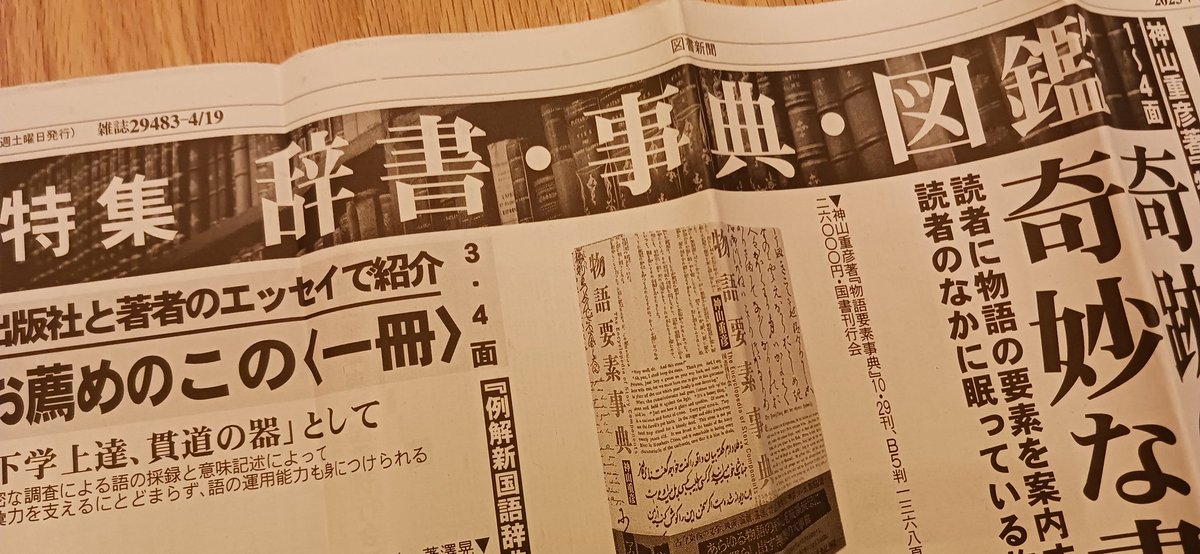 図書新聞
週土曜日発行) 雑誌29483-4/19
特集 辞書・事典・図鑑
1〜4面
神山重彦著
奇跡
奇妙な
読者に物語の要素を案内
読者のなかに眠っている
▼神山重彦著『物語要素事典』10・29刊、B5判一三六八頁
二六〇〇〇円・国書刊行会
物語要素事典
神山重彦
物語要素事典
神山重彦
あらゆる物語の
3・4面
出版社と著者のエッセイで紹介
お薦めのこの〈一冊〉
『例解新国語辞
下学上達、貫道の器」として
密な調査による語の採録と意味記述によって
彙力を支えるにとどまらず、語の運用能力も身につけられる